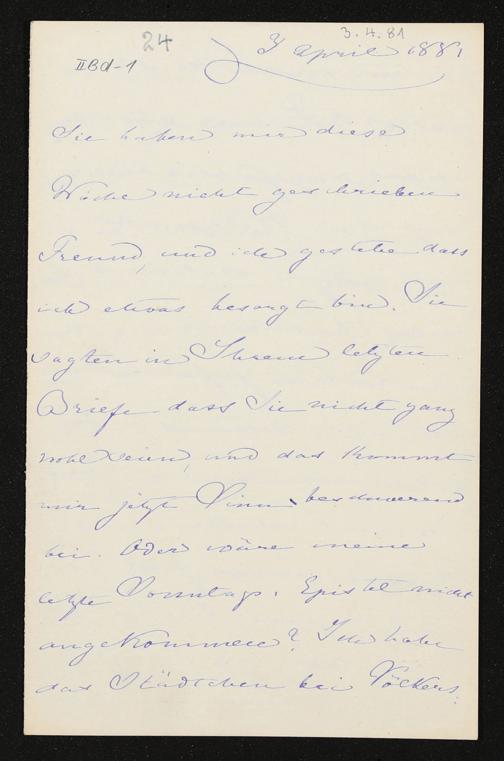 24
3.4.81
IIBd-1
3 April 1881
Sie haben mir diese
Woche nicht geschrieben
Freund, und ich gestehe dass
ich etwas besorgt bin. Sie
sagten in Ihrem letzten
Briefe dass Sie nicht ganz
wohl seien, und das kommt
mir jetzt
bei. Oder wäre meine
letzte Sonntags-Epistel nicht
angekommen? Ich habe
das Städtchen bei